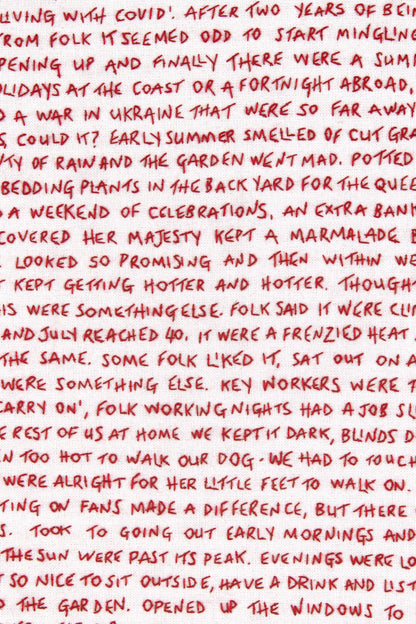 LIVING WITH COVID'. AFTER TWO YEARS OF BEI
FROM FOLK IT SEEMED ODD TO START MINGLIN
PENING UP AND FINALLY THERE WERE A SUM
LIDAYS AT THE COAST OR A FORTNIGHT ABROAD,
A WAR IN UKRAINE THAT WERE SO FAR AWAY
COULD IT? EARLY SUMMER SMELLED OF CUT GR
TY OF RAIN AND THE GARDEN WENT MAD. POTTED
BEDDING PLANTS IN THE BACK YARD FOR THE QUEE
A WEEKEND OF CELEBRATIONS, AN EXTRA BANK
COVERED HER MAJESTY KEPT A MARMALADE
LOOKED SO PROMISING AND THEN WITHIN WE
KEPT GETTING HOTTER AND HOTTER. THOUGHT
IS WERE SOMETHING ELSE. FOLK SAID IT WERE CLI
AND JULY REACHED 40. IT WERE A FRENZIED HEAT
THE SAME. SOME FOLK LIKED IT, SAT OUT ON A
WERE SOMETHING ELSE. KEY WORKERS WERE T
CARRY ON', FOLK WORKING NIGHTS HAD A JOB SL
E REST OF US AT HOME WE KEPT IT DARK, BLINDS D
N TOO HOT TO WALK OUR DOG - WE HAD TO TOUCH
WERE ALRIGHT FOR HER LITTLE FEET TO WALK ON.
TING ON FANS MADE A DIFFERENCE, BUT THERE
S. TOOK TO GOING OUT EARLY MORNINGS AND
THE SUN WERE PAST ITS PEAK. EVENINGS WERE LO
T SO NICE TO SIT OUTSIDE, HAVE A DRINK AND LIST
THE GARDEN. OPENED UP THE WINDOWS TO